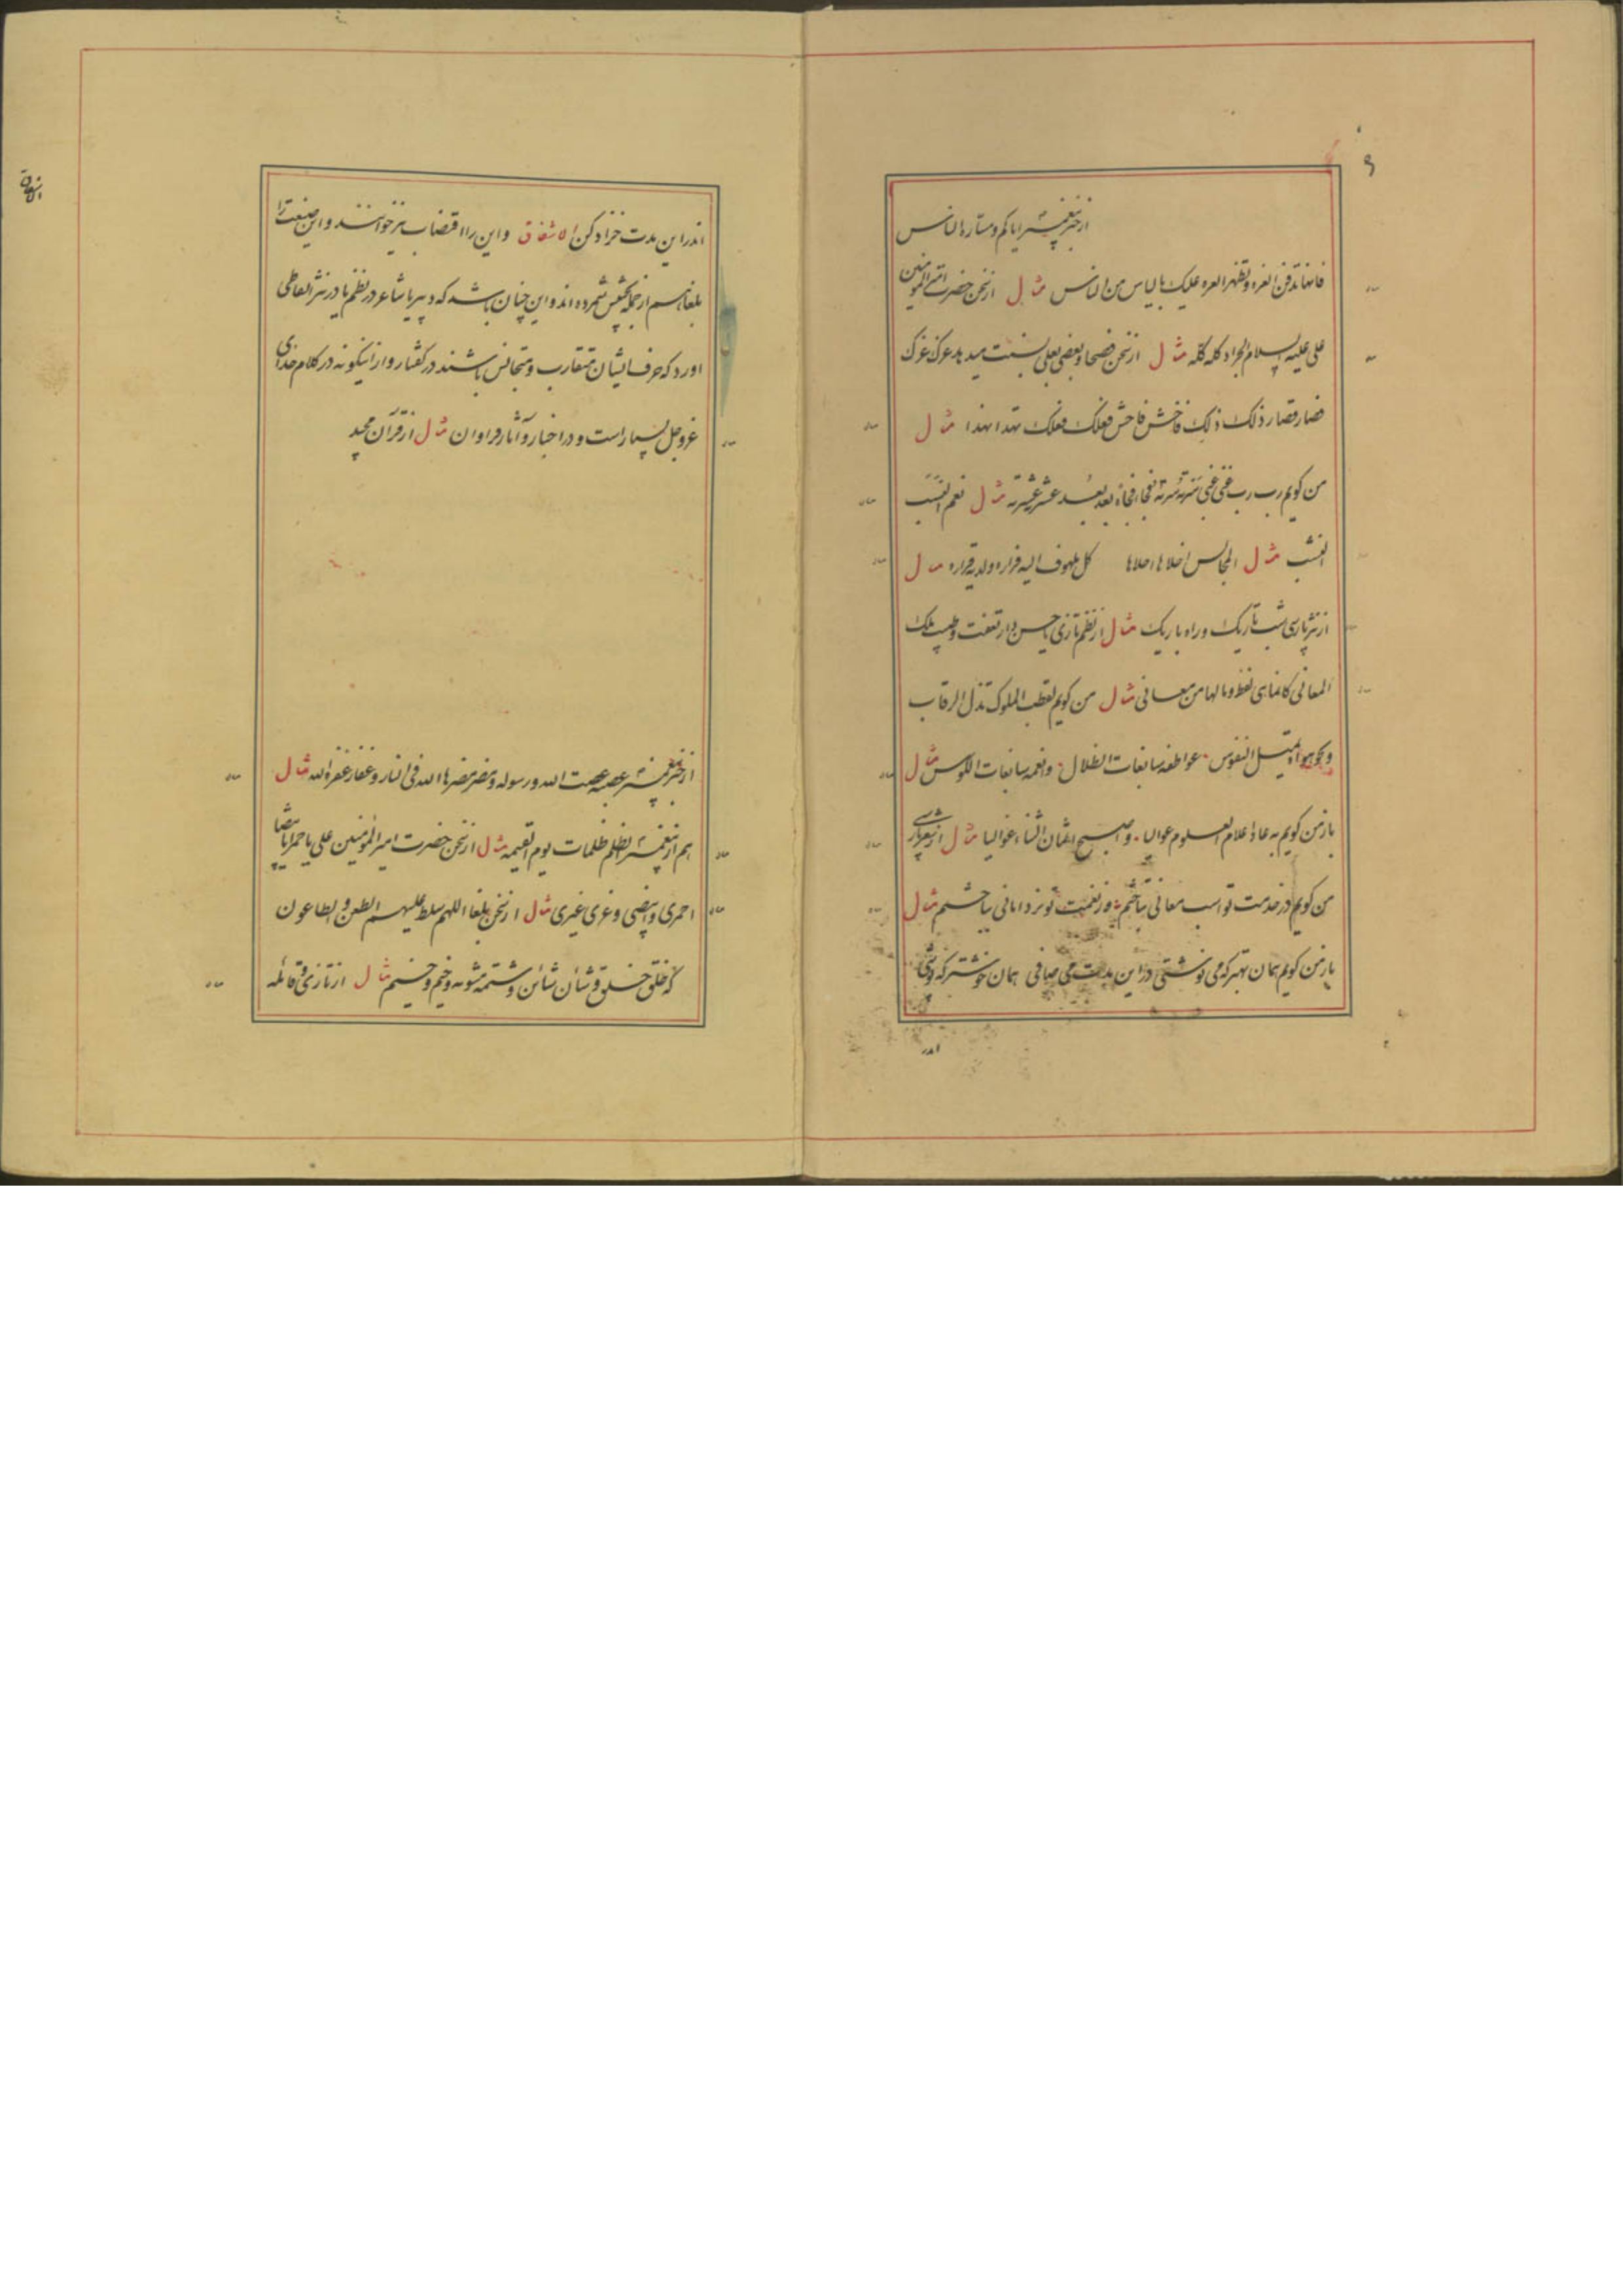 از خبر پیغمبر ایاکم و مشارة الناس
فانها تدفن الغره و تظهر العره علیک بالیاس من الناس مثال از سخن حضرت امیر المومنین
علی علیه السلام الجراد کله کله مثال از سخن فصحا و بعضی بعلی نسبت میدهد غرک عزک
فصار قصار ذلک ذلک فاخش فاحش فعلک فعلک تهدا بهذا مثال
من کویم رب رب غنی غبی سرته شرته فجاه فجاة بعد بعد عشر عشرته مثال نعم النسب
النشب مثال المجالس اخلاها احلاها کل ملهوف الیه فراره ولدیه قراره مثال
از نثر پارسی شب تاریک و راه باریک مثال از نظم تازی یا حسن دار تعفت و طیب ملک
المعانی کانما هی لفظ و مالها من معانی مثال من کویم لقطب الملوک تذل الرقاب
و نحو هواه تمیل النفوس عواطفه سابغات الظلال و انعمه سابغات الکوس مثال
باز من کویم به عاد اعلام العلوم عوالیا و اصبح اثمان الثناء غوالیا مثال از شعر پارسی
من کویم در خدمت تو اسب معانی بتاختم وز نعمت تو نرد امانی بباختم مثال
باز من کویم همان بهتر که می نوشتی در این مدت می صافی همان خوشتر که پوشی
اندر
اندر این مدت خز ادکن الاشتقاق و این را اقتضاب نیز خوانند و این صنعت را
بلغا هم از جمله تجنیس شمرده اند و این چنان باشد که دبیر یا شاعر در نظم یا در نثر الفاظی
اورد که حرف ایشان متقارب و متجانس باشند در کفتار و از اینکونه در کلام خدای
عزوجل بسیار است و در اخبار و آثار فراوان مثال از قرآن مجید
از خبر پیغمبر عصیه عصت الله و رسوله و مضر مضرها الله فی النار و غفار غفر الله مثال
هم از پیغمبر الظلم ظلمات یوم القیمه مثال از سخن حضرت امیر المومنین علی یا حمرا یا بیضا
احمری و ابیضی و غری غیری مثال از سخن بلغا اللهم سلط علیهم الطعن و الطاعون
که خلق خلق و شان شائن و شتمة مشومه و خیم وخیم مثال از تازی و قائله